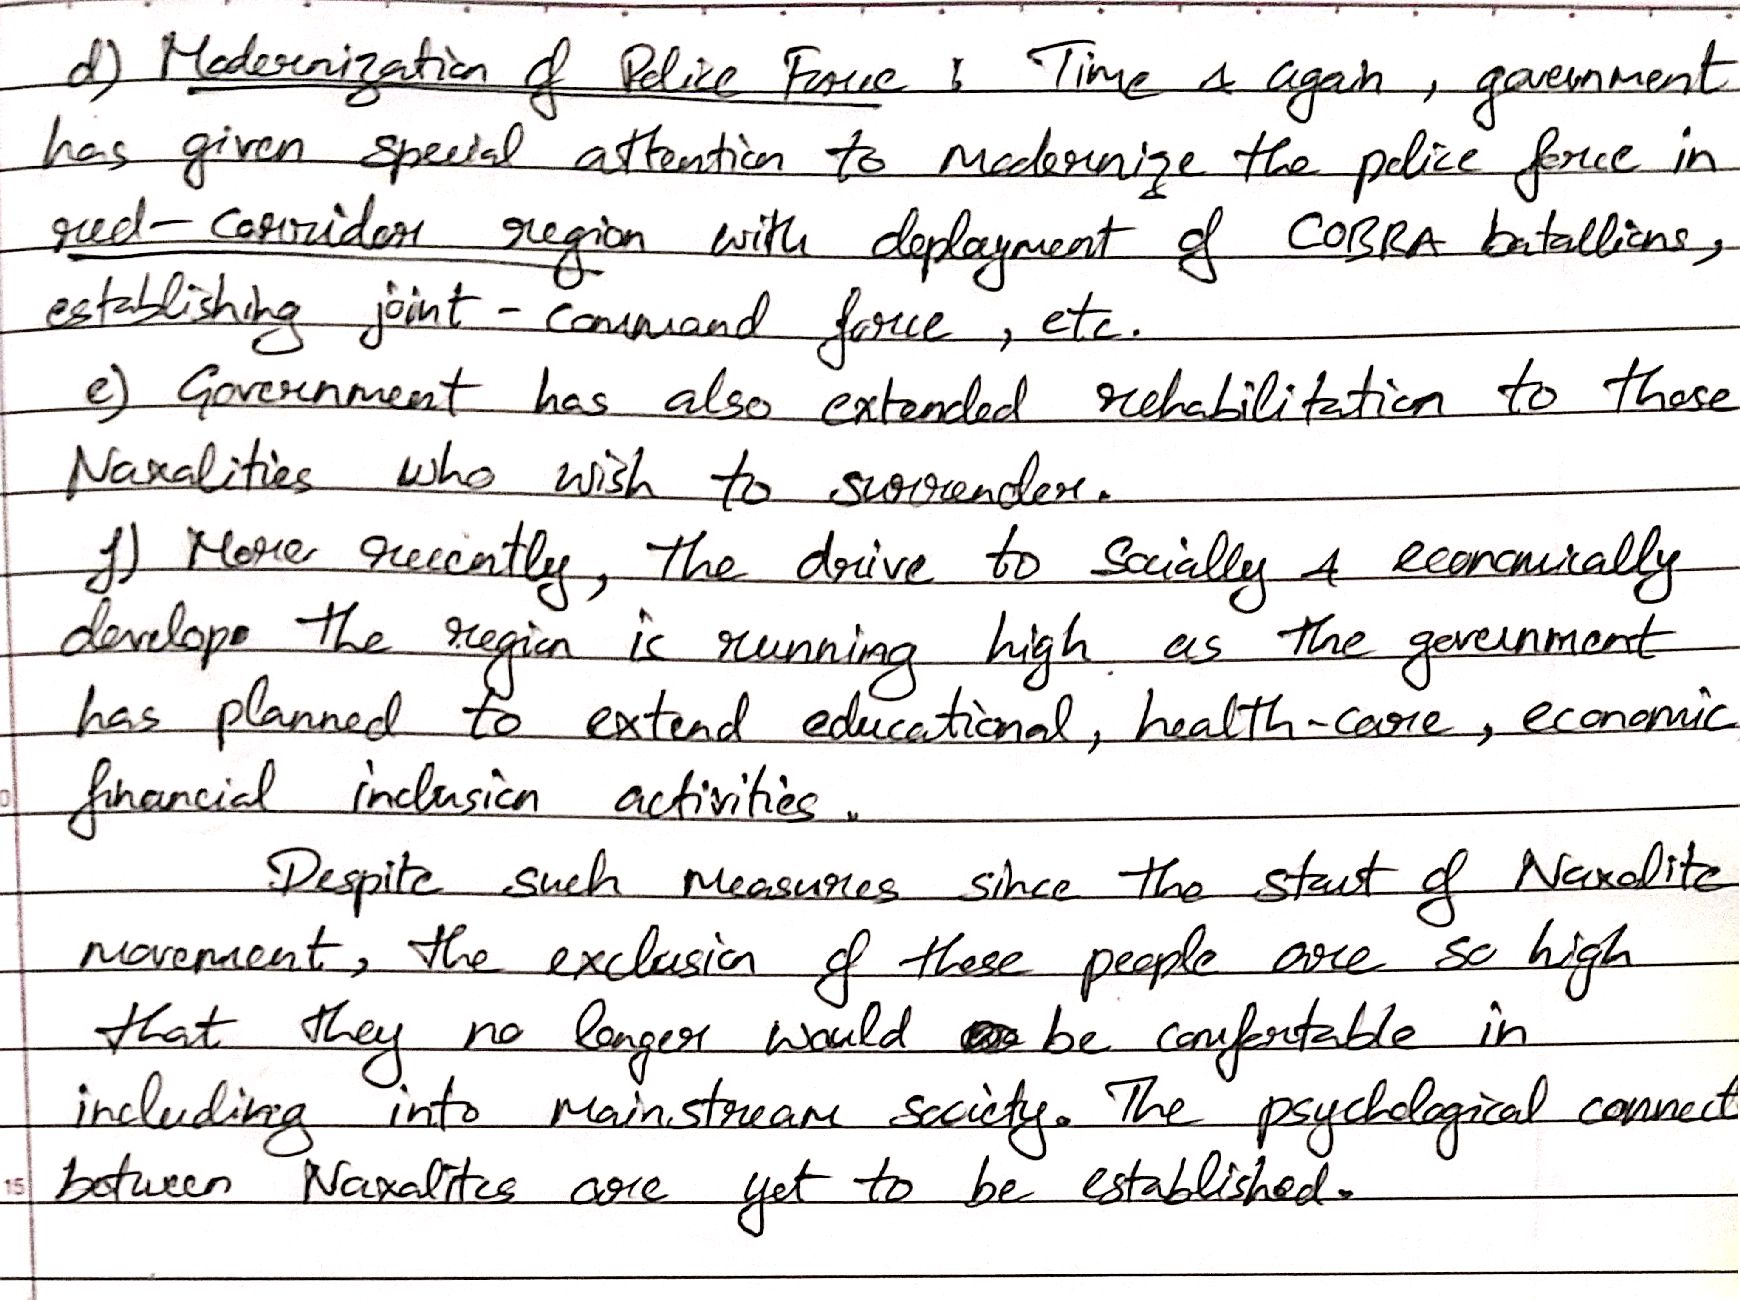 d) Modernization of Police Force : Time & again, government
has given special attention to modernize the police force in
red-corridor region with deployment of COBRA batallions,
establishing joint-command force, etc.
e) Government has also extended rehabilitation to those
Naxalities who wish to surrender.
f) More recently, the drive to socially & economically
develop the region is running high as the government
has planned to extend educational, health-care, economic
financial inclusion activities.
Despite such measures since the start of Naxalite
movement, the exclusion of these people are so high
that they no longer would be comfortable in
including into mainstream society. The psychological connect
between Naxalites are yet to be established.
15